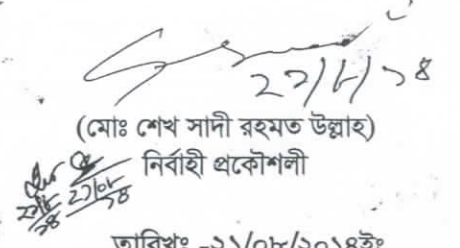 ২১/৮/১৪
(মোঃ শেখ সাদী রহমত উল্লাহ)
নির্বাহী প্রকৌশলী
২১/০৮
তারিখঃ -২১/০৮/২০১৪ইং